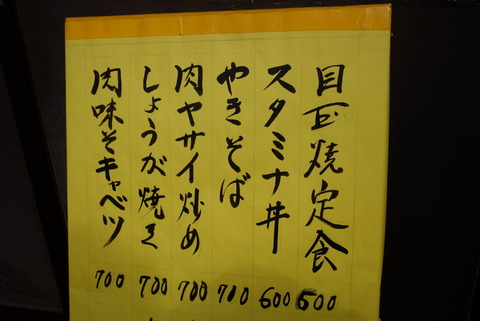 目玉焼定食 500
スタミナ丼 600
やきそば 700
肉ヤサイ炒め 700
しょうが焼き 700
肉味そキャベツ 700